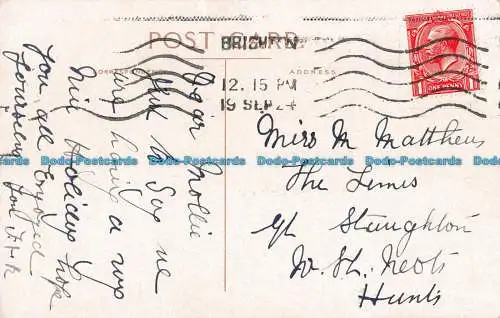 POST CARD
BRIGHTON
12.15 PM
19 SEP 24
ADDRESS
ONE PENNY
Dear Mollie
Just to Say we
are having a very
Nice Holiday hope
you all Enjoyed
yourselves
from
Miss M Matthews
The Limes
Gt Staughton
Nr St. Neots
Hunts
Dodo-Postcards Dodo-Postcards Dodo-Postcards Dodo-Postcards